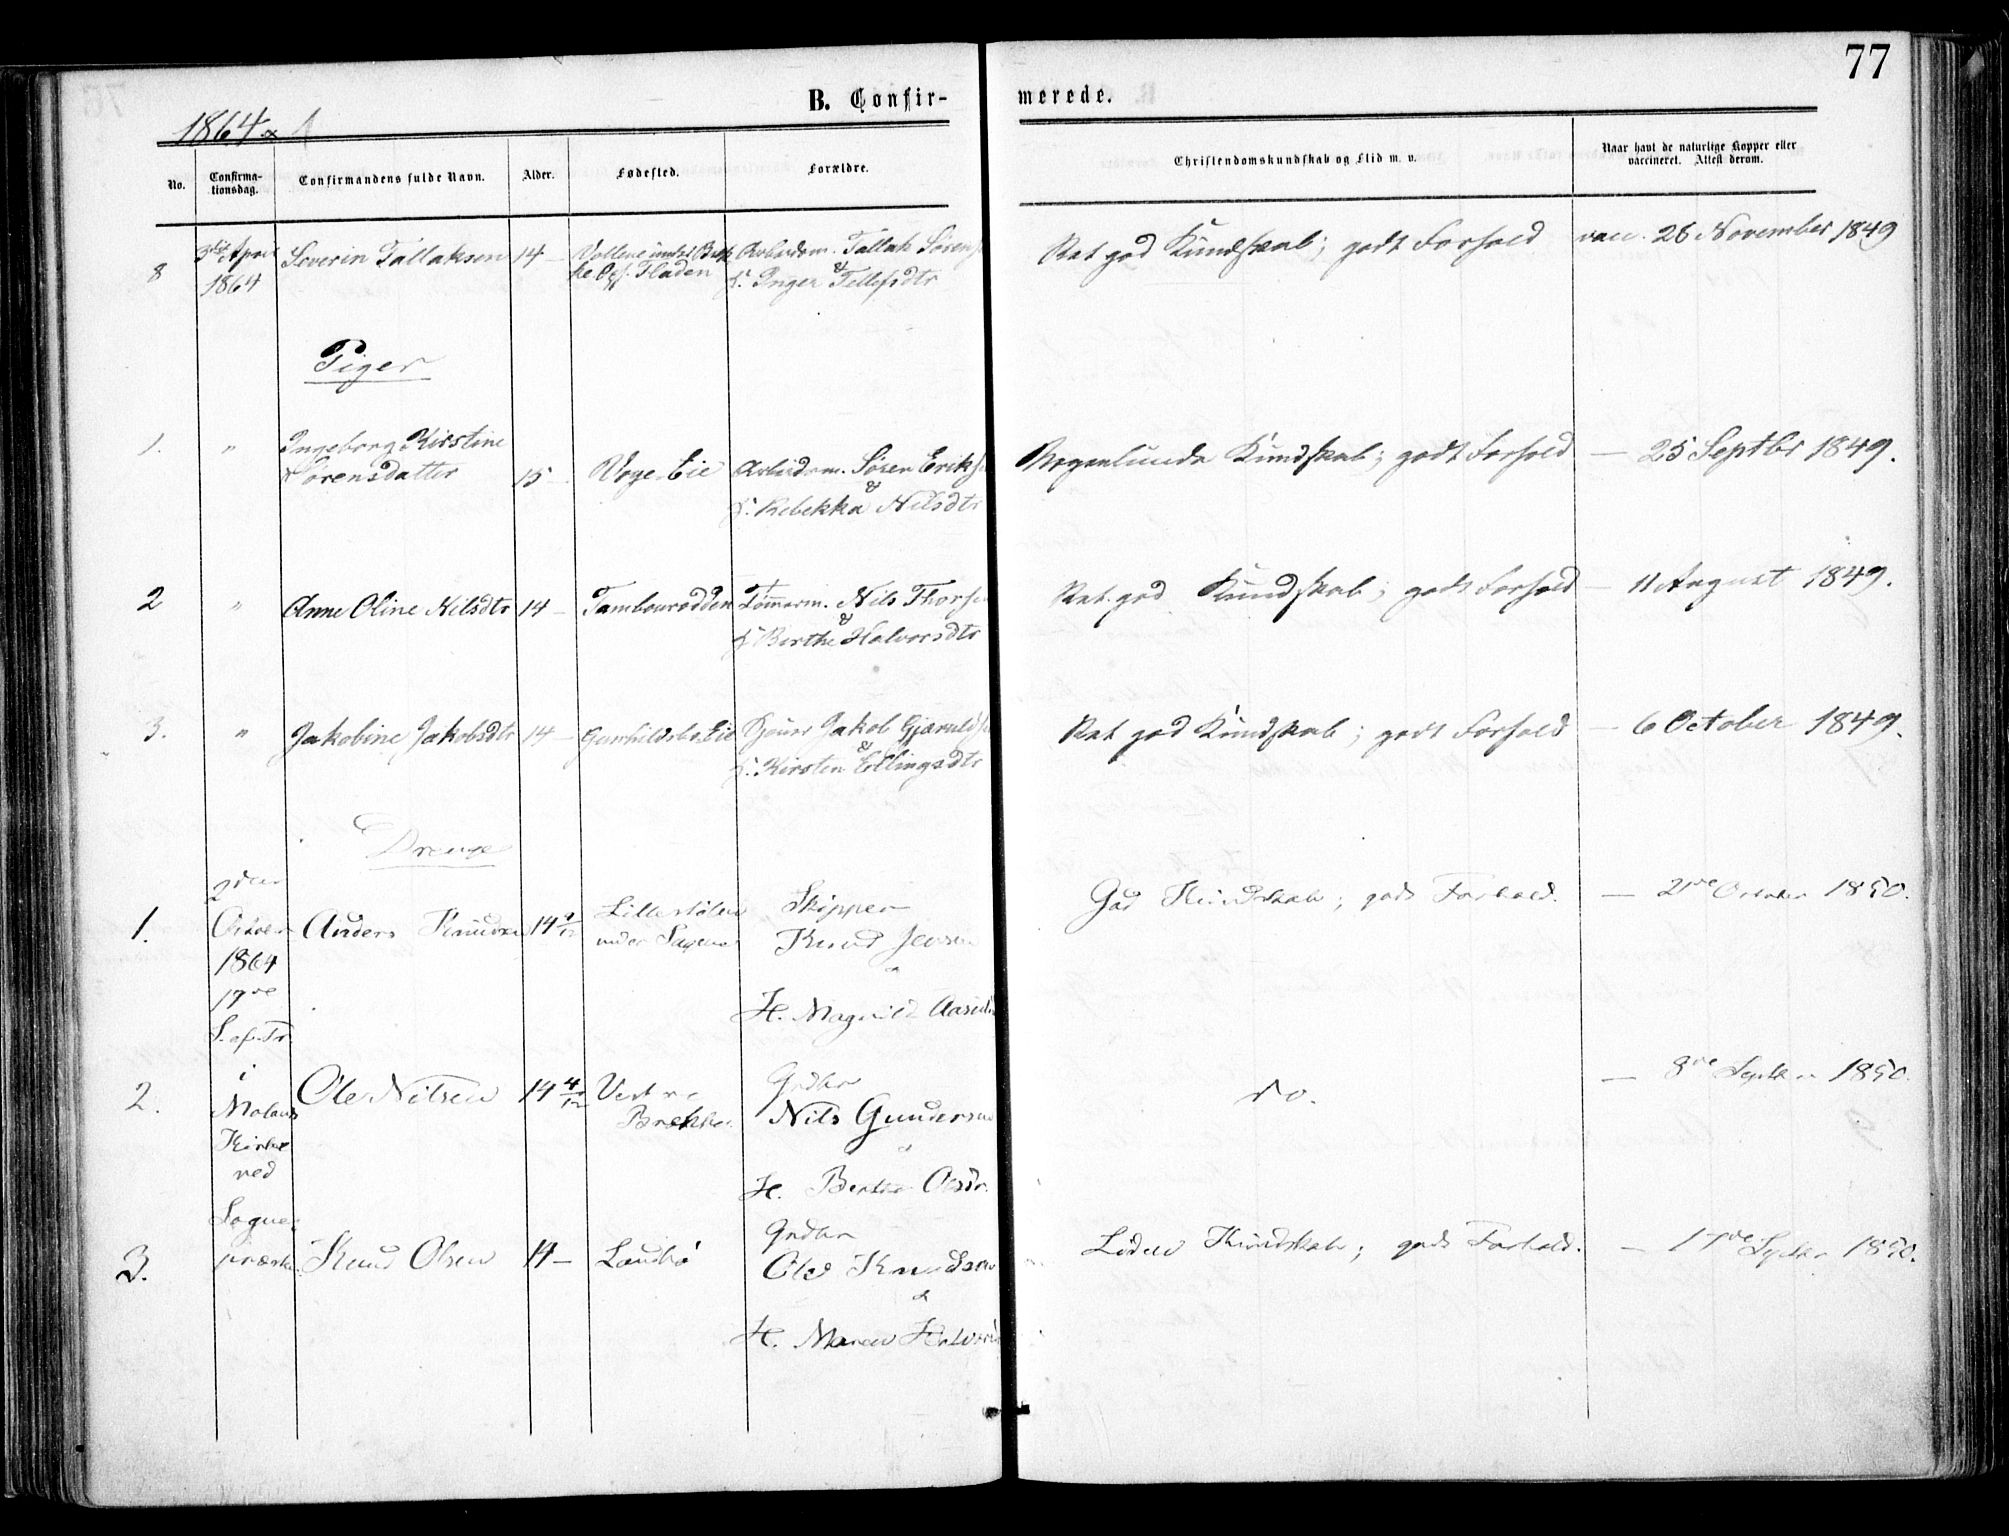 77
B. Confir- merede.
1864
No.
Confirma-
tionsdag.
Confirmandens fulde Navn.
Alder.
Fødested.
Forældre.
Christendomskundskab og Flid m. v.
Naar havt de naturlige Kopper eller
vaccineret. Attest derom.
8 3die April Severin Tallaksen 14 Arbeidsm. Tallak Sørens Ret god Kundskab; godt Forhold vacc. 26 November 1849
1864 & Inger Tellefsdtr
Piger
1. " Ingeborg Kirstine
Sørensdatter 15 Voge Eie Arbeidsm. Søren Eriks Kundskab; godt Forhold — 25 Septbr 1849.
&
Rebekka Nilsdtr
2 " Anne Oline Nilsdtr 14 — Tambourodden Tømmerm. Nils Thors Ret god Kundskab; godt Forhold — 11 August 1849.
&
Berthe Halvorsdtr
3. " Jakobine Jakobsdtr 14 — Jakob Gjeruldsen Ret god Kundskab; godt Forhold — 6 October 1849.
&
Kirsten Ellingsdtr
Drenge
1. 2den
October
1864
17de
S. af Tr.
i
Kirke
ved
Sogne-
præsten
Anders Knudsen 14 Skipper
Knud Jensen
H. Magnild God Kundskab; godt Forhold. — 2 October 1850.
2. Ole Nilsen 14 4/12 Vestre
Brekke Grdbr
Nils Gundersen
H. Berthe Olsdr. do. — 8de Septbr 1850.
3. Knud Olsen 14 — Landbø Grdbr
Ole Knudsen
&
H. Maren Liden Kundskab; godt Forhold. — 17de Septbr 1850.